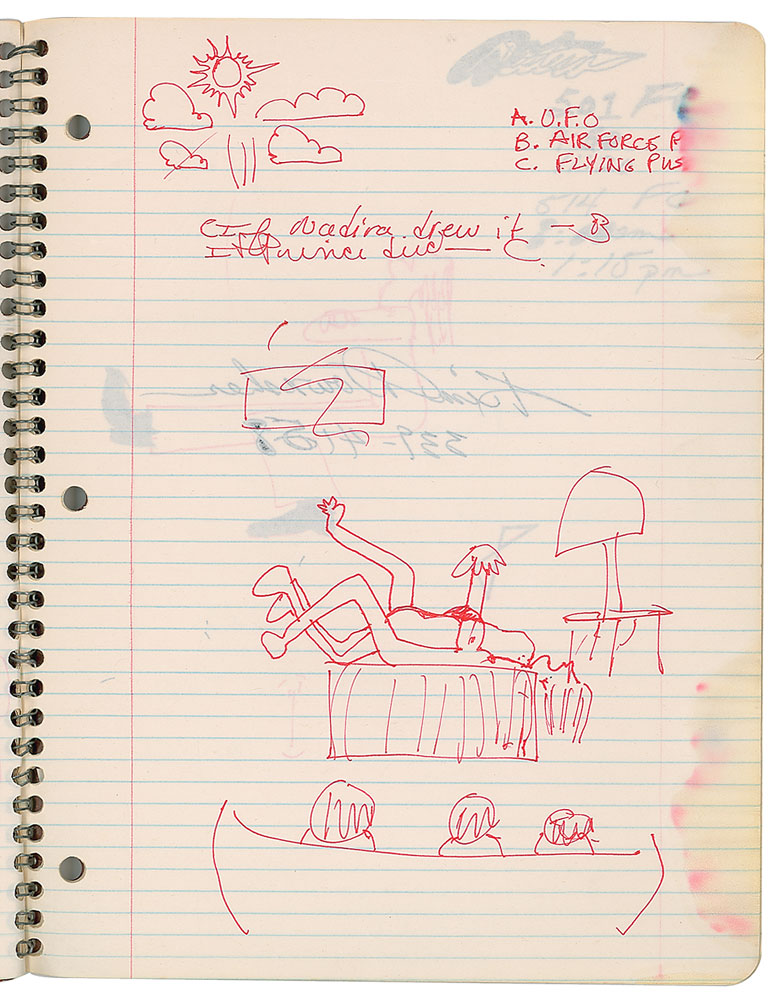 A. U.F.O
B. AIR FORCE P
C. FLYING PUS
If Nadira drew it — B
If Prince did — C.
501 F
514 F
1:15 pm
339-4158